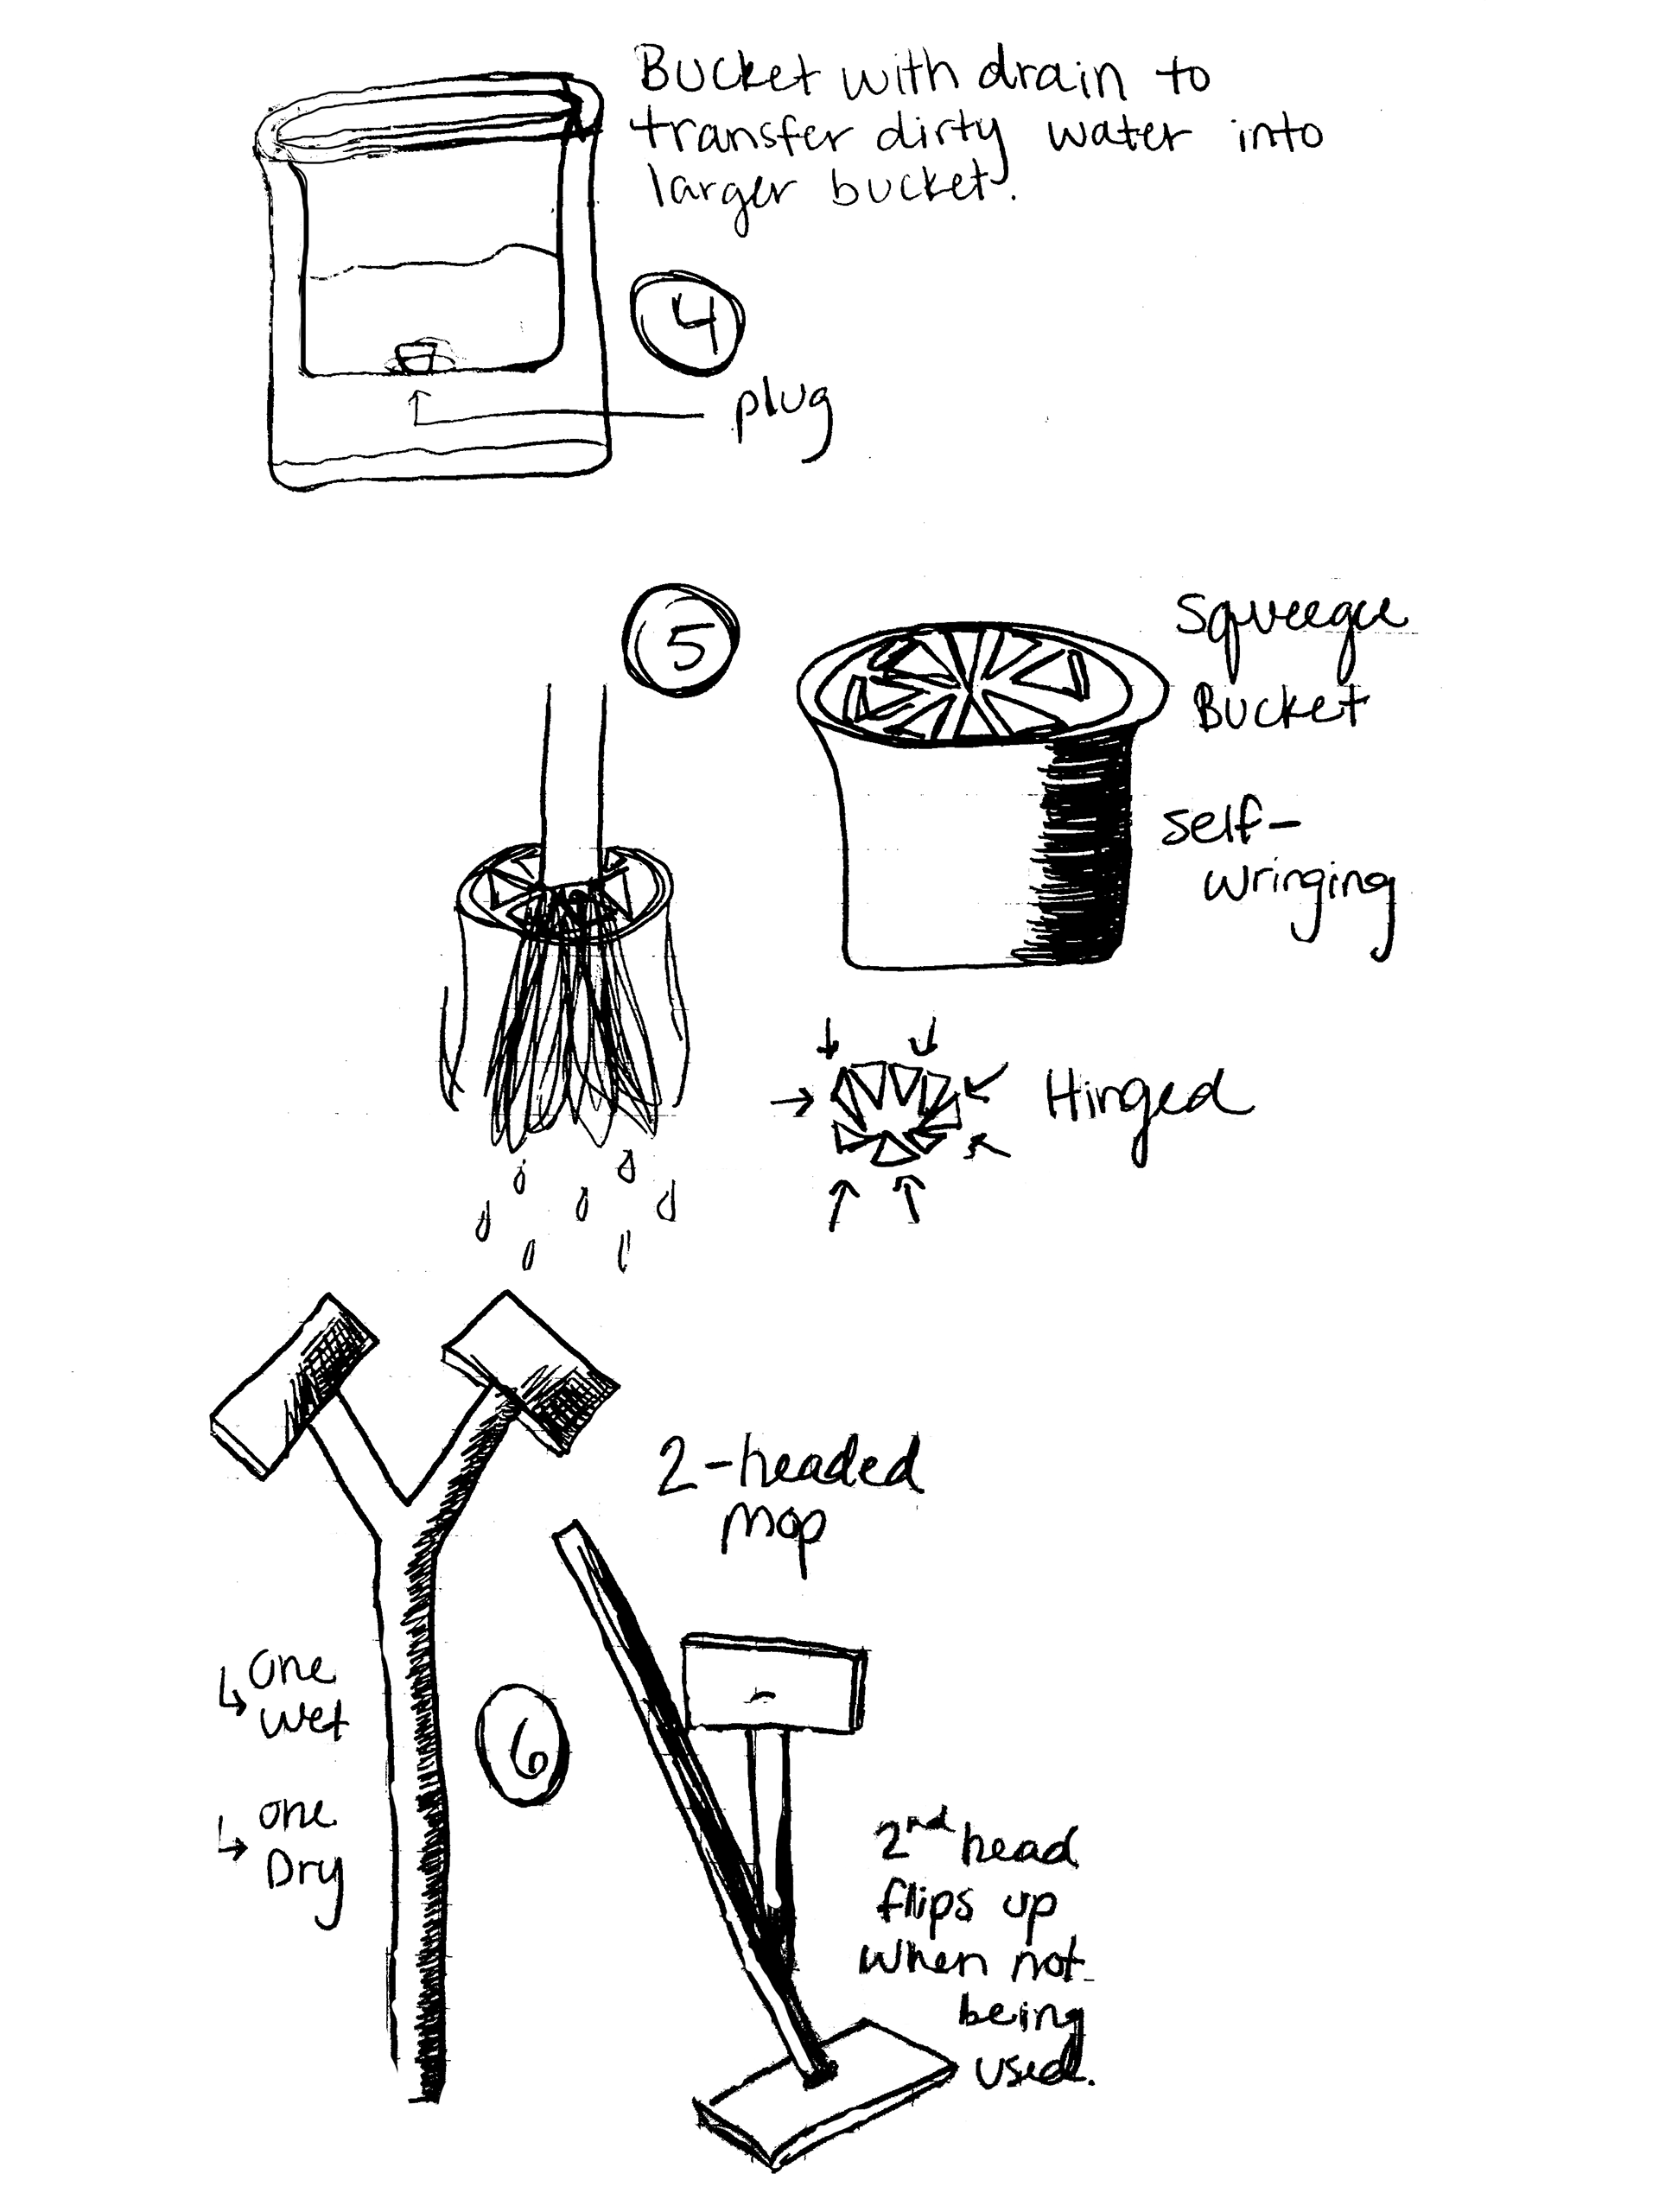 Bucket with drain to
transfer dirty water into
larger bucket.
4
plug
5
Squeegee
Bucket
Self-
wringing
Hinged
2-headed
mop
One
wet
one
Dry
6
2nd head
flips up
when not
being
used.